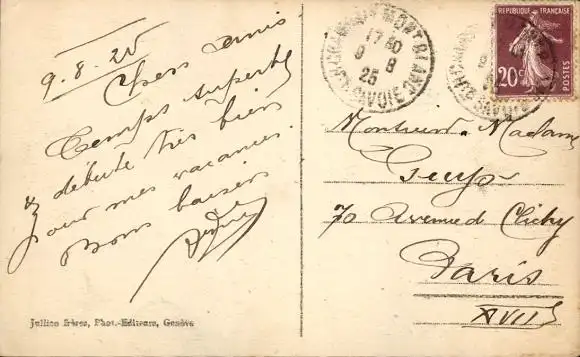 9.8.25
Chers amis
Temps superbe
& débute très bien
pour mes vacances.
Bons baisers
Jullien frères, Phot.-Editeurs, Genève
CHAMONIX MONT BLANC
17 30
9 8
25
HTE SAVOIE
REPUBLIQUE FRANÇAISE
20c
POSTES
Monsieur. Madame
70 Avenue d Clichy
Paris
XVII